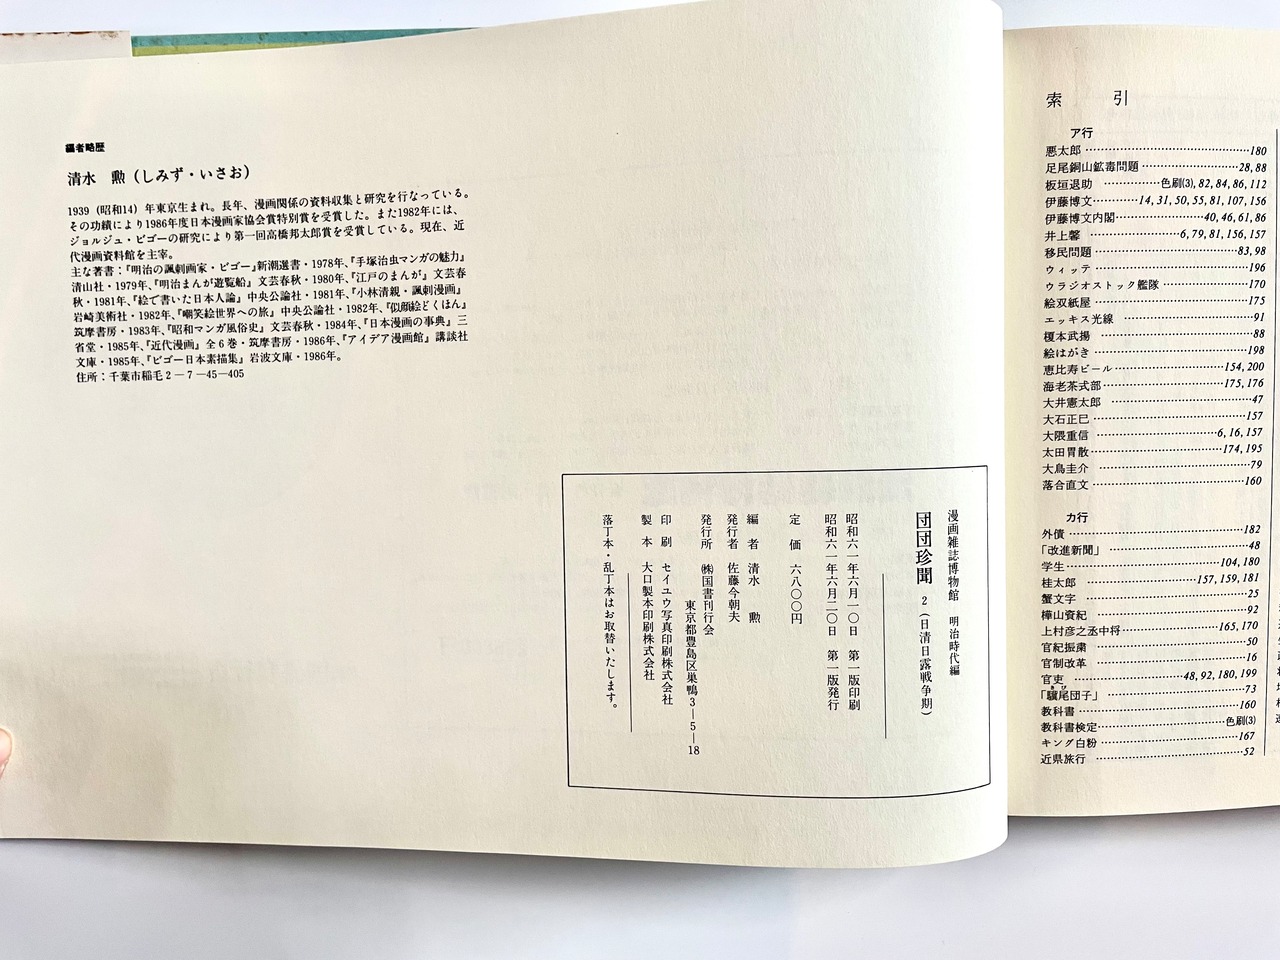 編者略歴
清水　勲（しみず・いさお）
1939（昭和14）年東京生まれ。長年、漫画関係の資料収集と研究を行なっている。
その功績により1986年度日本漫画家協会賞特別賞を受賞した。また1982年には、
ジョルジュ・ビゴーの研究により第一回高橋邦太郎賞を受賞している。現在、近
代漫画資料館を主宰。
主な著書：『明治の諷刺画家・ビゴー』新潮選書・1978年、『手塚治虫マンガの魅力』
清山社・1979年、『明治まんが遊覧船』文芸春秋・1980年、『江戸のまんが』文芸春
秋・1981年、『絵で書いた日本人論』中央公論社・1981年、『小林清親・諷刺漫画』
岩崎美術社・1982年、『嘲笑絵世界への旅』中央公論社・1982年、『似顔絵どくほん』
筑摩書房・1983年、『昭和マンガ風俗史』文芸春秋・1984年、『日本漫画の事典』三
省堂・1985年、『近代漫画』全6巻・筑摩書房・1986年、『アイデア漫画館』講談社
文庫・1985年、『ビゴー日本素描集』岩波文庫・1986年。
住所：千葉市稲毛2－7－45－405
漫画雑誌博物館　明治時代編
団団珍聞　2（日清日露戦争期）
昭和六一年六月一〇日　第一版印刷
昭和六一年六月二〇日　第一版発行
定　価　六八〇〇円
編　者　清水　勲
発行者　佐藤今朝夫
発行所　㈱国書刊行会
東京都豊島区巣鴨3－5－18
印　刷　セイユウ写真印刷株式会社
製　本　大口製本印刷株式会社
落丁本・乱丁本はお取替いたします。
索　引
ア行
悪太郎……180
足尾銅山鉱毒問題……28, 88
板垣退助……色刷(3), 82, 84, 86, 112
伊藤博文……14, 31, 50, 55, 81, 107, 156
伊藤博文内閣……40, 46, 61, 86
井上馨……6, 79, 81, 156, 157
移民問題……83, 98
ウィッテ……196
ウラジオストック艦隊……170
絵双紙屋……175
エッキス光線……91
榎本武揚……88
絵はがき……198
恵比寿ビール……154, 200
海老茶式部……175, 176
大井憲太郎……47
大石正巳……157
大隈重信……6, 16, 157
太田胃散……174, 195
大鳥圭介……79
落合直文……160
カ行
外債……182
「改進新聞」……48
学生……104, 180
桂太郎……157, 159, 181
蟹文字……25
樺山資紀……92
上村彦之丞中将……165, 170
官紀振粛……50
官制改革……16
官吏……48, 92, 180, 199
「驥尾団子」……73
教科書……160
教科書検定……色刷(3)
キング白粉……167
近県旅行……52